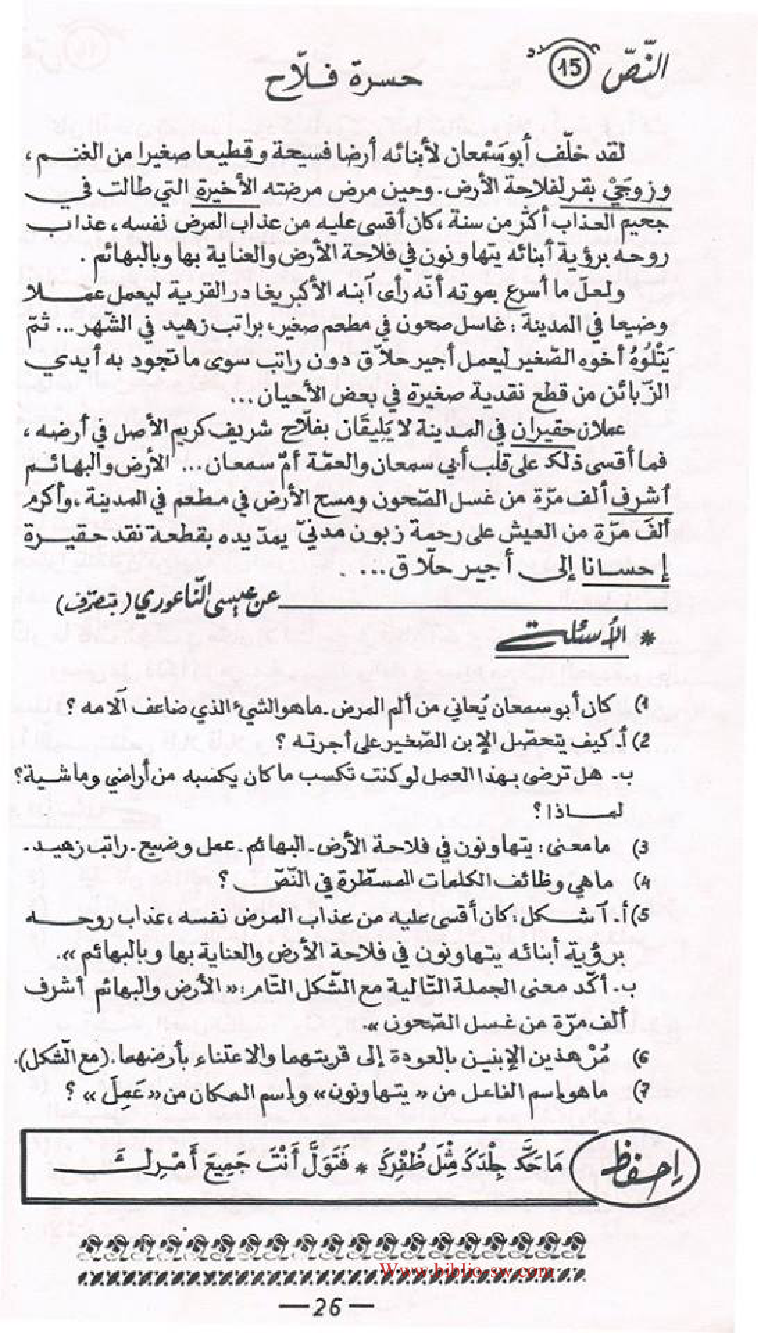 النّصّ 15
حسرة فلاّح
لقد خلّف أبو سَمْعان لأبنائه أرضا فسيحة وقطيعا صغيرا من الغنم،
وزوجَيْ بقر لفلاحة الأرض. وحين مرض مرضته الأخيرة التي طالت في
جحيم العذاب أكثر من سنة، كان أقسى عليه من عذاب المرض نفسه، عذاب
روحه برؤية أبنائه يتهاونون في فلاحة الأرض والعناية بها وبالبهائم.
ولعلّ ما أسرع بموته أنّه رأى آبنه الأكبر يغادر القرية ليعمل عملا
وضيعا في المدينة: غاسل صحون في مطعم صغير، براتب زهيد في الشّهر ... ثمّ
يَتْلُوهُ أخوه الصّغير ليعمل أجير حلاّق دون راتب سوى ما تجود به أيدي
الزّبائن من قطع نقدية صغيرة في بعض الأحيان ...
عملان حقيران في المدينة لا يَلِيقَان بفلاّح شريف كريم الأصل في أرضه،
فما أقسى ذلك على قلب أبي سمعان والعمّة أمّ سمعان ... الأرض والبهائم
أشرف ألف مرّة من غسل الصّحون ومسح الأرض في مطعم في المدينة، وأكرم
ألف مرّة من العيش على رحمة زبون مدنيّ يمدّ يده بقطعة نقد حقيرة
إحسانا إلى أجير حلاّق ...
عن عيسى النّاعوري (بتصرّف)
* الأسئلة
1) كان أبو سمعان يُعاني من ألم المرض. ما هو الشيئ الذي ضاعف آلامه؟
2) أ. كيف يتحصّل الإبن الصّغير على أجرته؟
ب. هل ترضى بهذا العمل لو كنت تكسب ما كان يكسبه من أراضي وماشية؟
لماذا؟
3) ما معنى: يتهاونون في فلاحة الأرض. البهائم. عمل وضيع. راتب زهيد.
4) ما هي وظائف الكلمات المسطّرة في النّصّ؟
5) أ. آشكل: كان أقسى عليه من عذاب المرض نفسه، عذاب روحه
برؤية أبنائه يتهاونون في فلاحة الأرض والعناية بها وبالبهائم».
ب. أكّد معنى الجملة التّالية مع الشّكل التّام: «الأرض والبهائم أشرف
ألف مرّة من غسل الصّحون».
6) مُرْ هذين الإبنين بالعودة إلى قريتهما والاعتناء بأرضهما. (مع الشّكل).
7) ما هو إسم الفاعل من «يتهاونون» وإسم المكان من «عَمِلَ»؟
إحفظ
مَا حَكَّ جِلْدَكَ مِثْلُ ظُفْرِكَ * فَتَوَلَّ أَنْتَ جَمِيعَ أَمْرِكَ
Www.biblio-sw.com
— 26 —